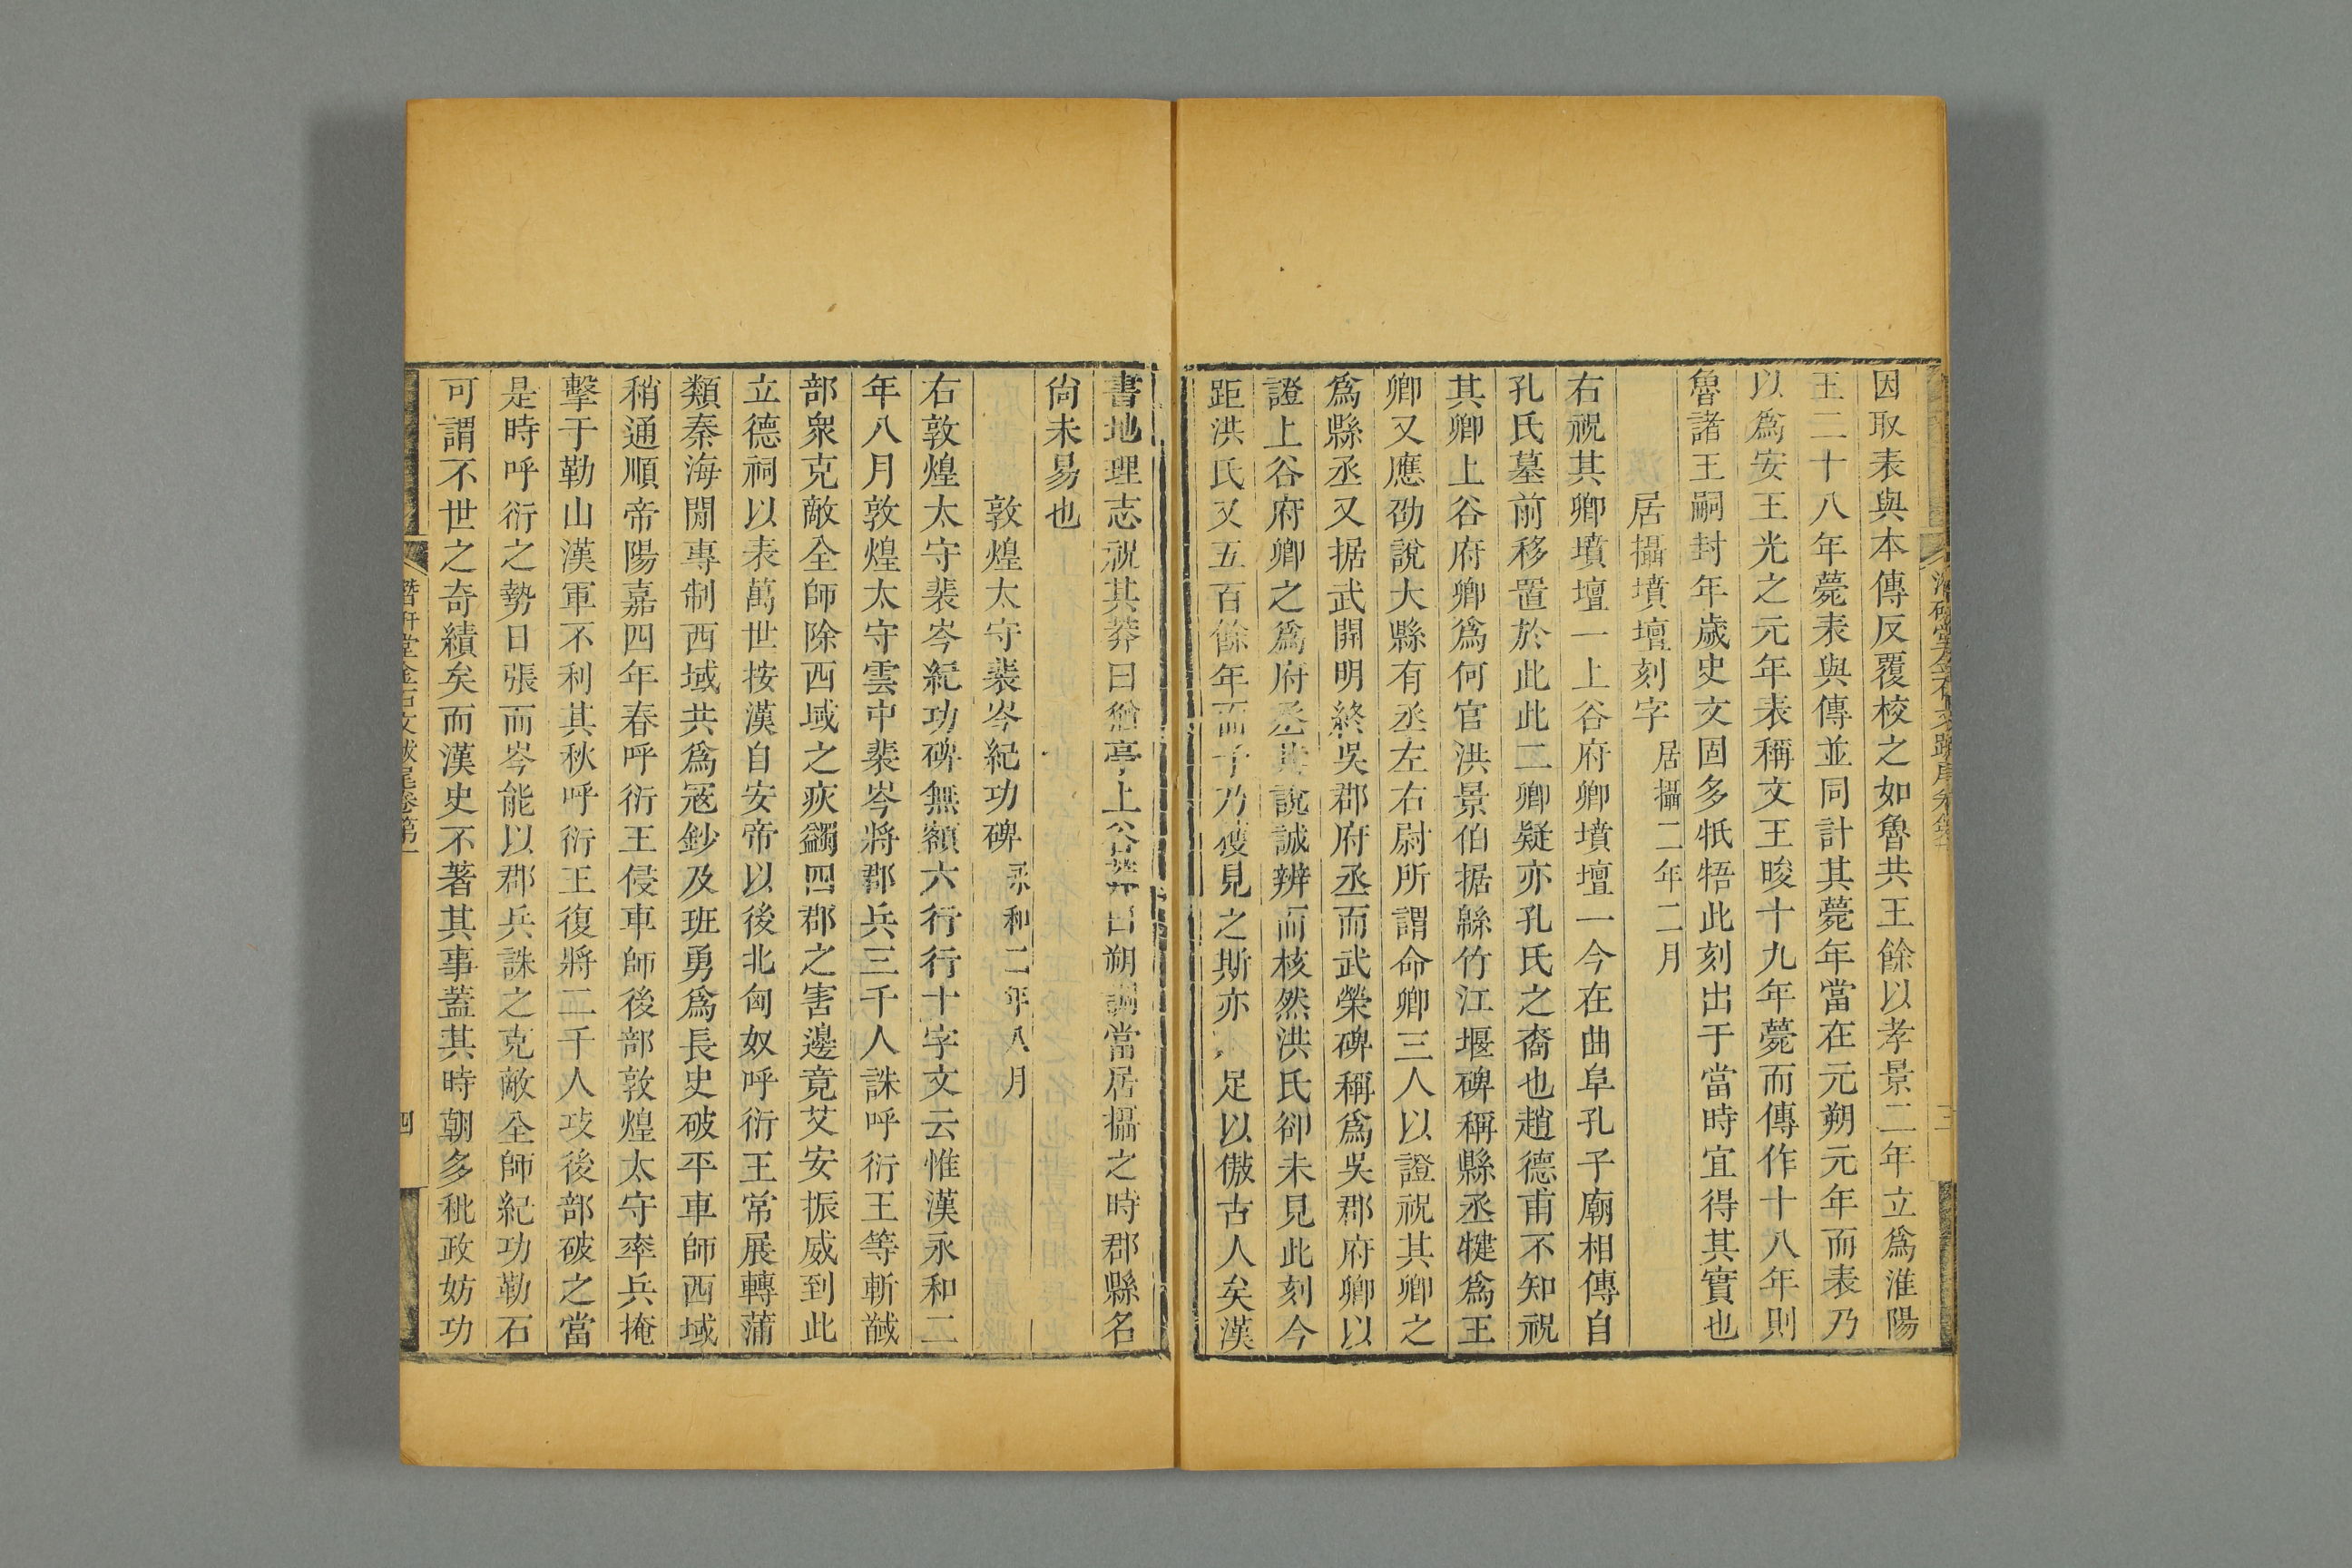 因取表與本傳反覆校之如魯共王餘以孝景二年立爲淮陽
王二十八年薨表與傳並同計其薨年當在元朔元年而表乃
以爲安王光之元年表稱文王晙十九年薨而傳作十八年則
魯諸王嗣封年歲史文固多牴牾此刻出于當時宜得其實也
居攝墳壇刻字 居攝二年二月
右祝其卿墳壇一上谷府卿墳壇一今在曲阜孔子廟相傳自
孔氏墓前移置於此此二卿疑亦孔氏之裔也趙德甫不知祝
其卿上谷府卿爲何官洪景伯据緜竹江堰碑稱縣丞犍爲王
卿又應劭說大縣有丞左右尉所謂命卿三人以證祝其卿之
爲縣丞又据武開明終吳郡府丞而武榮碑稱爲吳郡府卿以
證上谷府卿之爲府丞其說誠辨而核然洪氏卻未見此刻今
距洪氏又五百餘年而予乃獲見之斯亦足以傲古人矣漢
書地理志祝其莽曰猶亭上谷莽曰朔調當居攝之時郡縣名
尙未易也
敦煌太守裴岑紀功碑 永和二年八月
右敦煌太守裴岑紀功碑無額六行行十字文云惟漢永和二
年八月敦煌太守雲中裴岑將郡兵三千人誅呼衍王等斬馘
部衆克敵全師除西域之疢蠲四郡之害邊竟艾安振威到此
立德祠以表萬世按漢自安帝以後北匈奴呼衍王常展轉蒲
類秦海閒專制西域共爲寇鈔及班勇爲長史破平車師西域
稍通順帝陽嘉四年春呼衍王侵車師後部敦煌太守率兵掩
擊于勒山漢軍不利其秋呼衍王復將二千人攻後部破之當
是時呼衍之勢日張而岑能以郡兵誅之克敵全師紀功勒石
可謂不世之奇績矣而漢史不著其事蓋其時朝多秕政妨功
潛研堂金石文跋尾卷第一
四